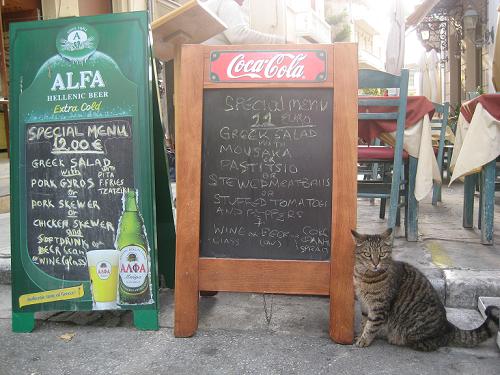 ALFA
HELLENIC BEER
Extra Cold
SPECIAL MENU
12.00 €
GREEK SALAD
with
PORK GYROS
WITH PITA F.FRIES TZATZIKI
or
PORK SKEWER
or
CHICKEN SKEWER
and
SOFTDRINK or
BEER (can) or
WINE (glass)
ΑΛΦΑ
ΑΛΦΑ
Coca-Cola
SPECIAL MENU
11 EURO
GREEK SALAD
WITH
MOUSAKA
OR
PASTITSIO
OR
STEWED MEATBALLS
OR
STUFFED TOMATOES
AND PEPPERS
WINE or BEER or COK
GLASS CANS